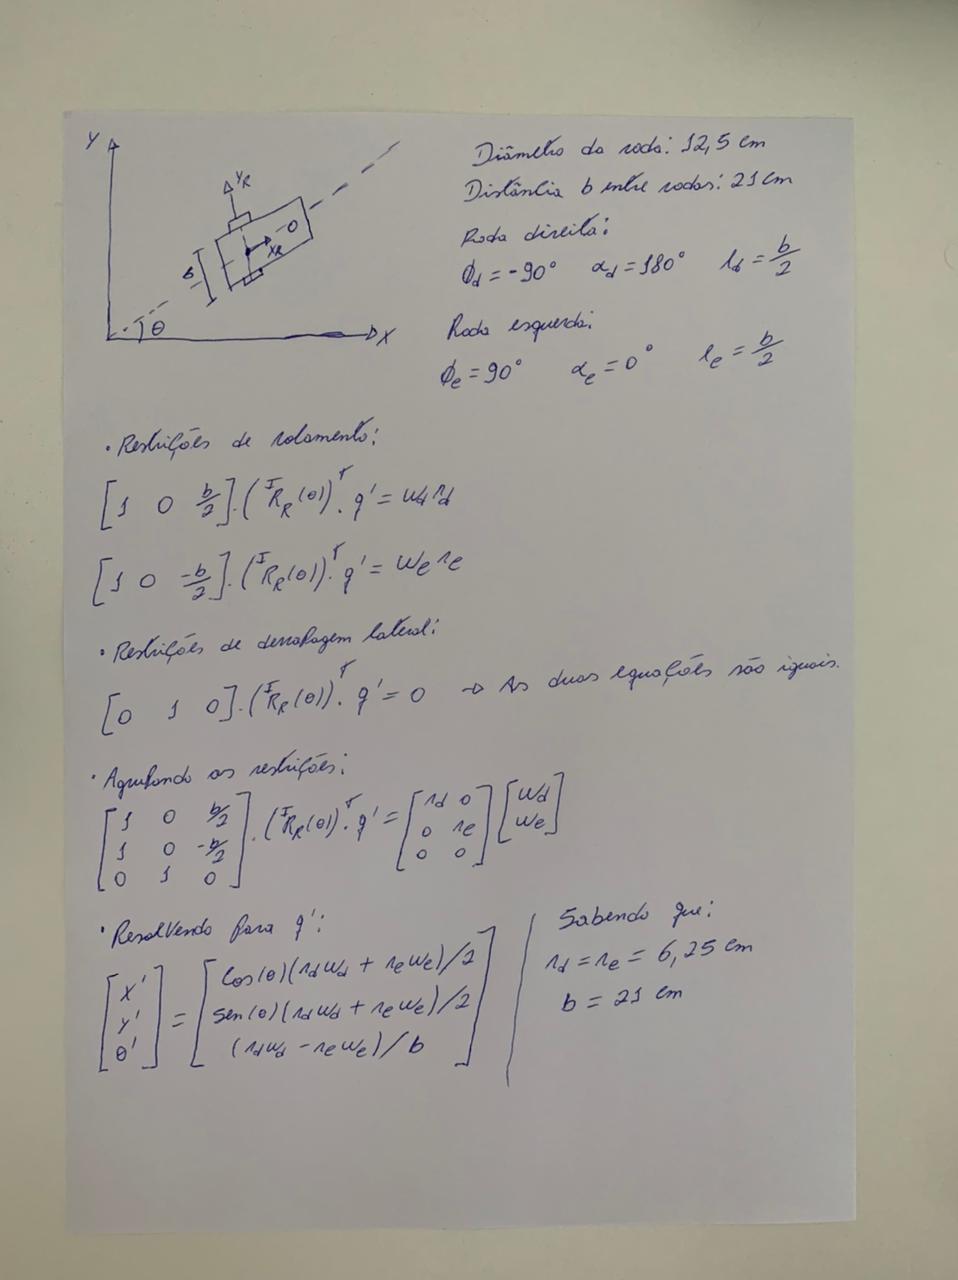 Y
Y_R
X_R
b
θ
X
Diâmetro da roda: 12,5 cm
Distância b entre rodas: 21 cm
Roda direita:
ϕ_d = -90° α_d = 180° l_d = b/2
Roda esquerda:
ϕ_e = 90° α_e = 0° l_e = b/2
• Restrições de rolamento:
[1 0 b/2].(ᴵR_R(θ))ᵀ. q' = ω_d r_d
[1 0 -b/2].(ᴵR_R(θ))ᵀ. q' = ω_e r_e
• Restrições de derrapagem lateral:
[0 1 0].(ᴵR_R(θ))ᵀ. q' = 0 → As duas equações são iguais.
• Agrupando as restrições:
[1 0 b/2; 1 0 -b/2; 0 1 0].(ᴵR_R(θ))ᵀ. q' = [r_d 0; 0 r_e; 0 0] [ω_d; ω_e]
• Resolvendo para q':
[X'; Y'; θ'] = [cos(θ)(r_d ω_d + r_e ω_e)/2; sen(θ)(r_d ω_d + r_e ω_e)/2; (r_d ω_d - r_e ω_e)/b]
Sabendo que:
r_d = r_e = 6,25 cm
b = 21 cm